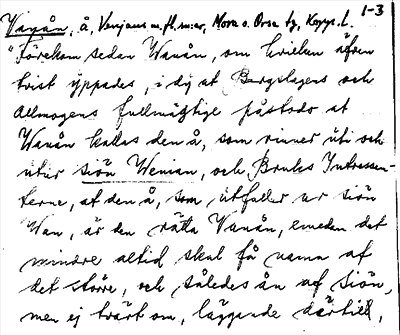 1-3
Vanån, å, Venjans m.fl. sn:ar, Mora o. Orsa tg, Kopps. l.
"Förekom sedan Wanån, om hvilken äfven
tvist yppades, i dy at Bergslagens och
Allmogens fullmägtige påstodo at
Wanån kallas den å, som rinner uti och
utur sjön Wenian, och Bruks Intressen-
terne, at den å, som utfaller ur sjön
Wan, är den rätta Wanån, emedan det
mindre altid skal få namn af
det större, och således ån af siön,
men ej tvärt om, läggande därtill,